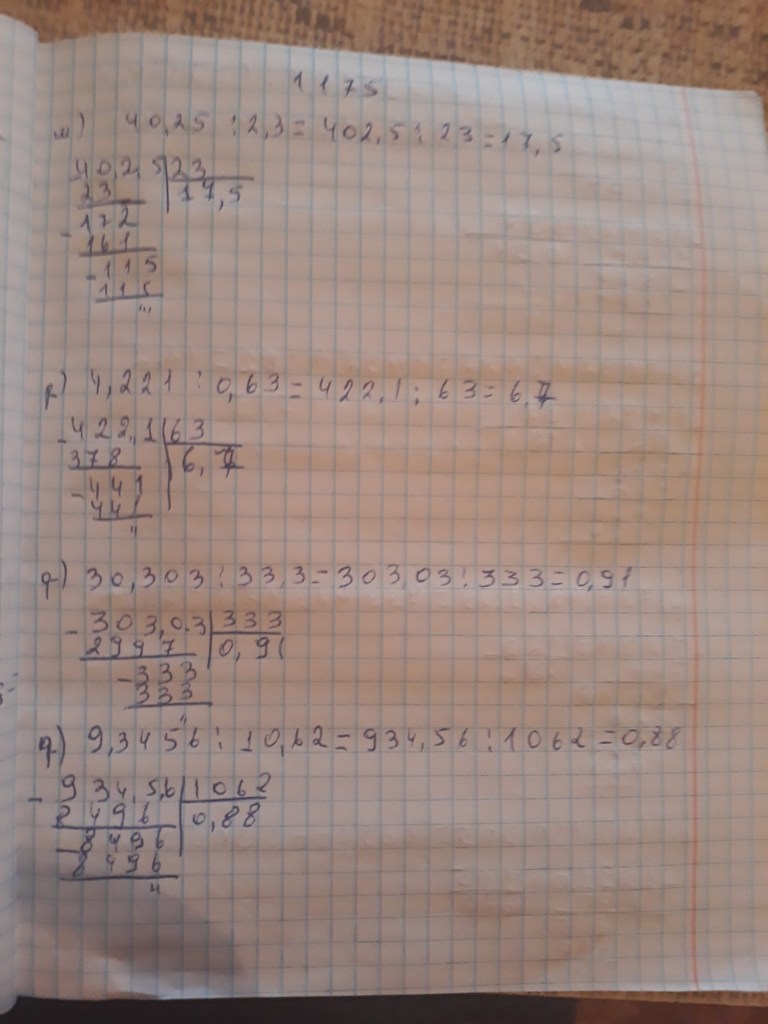 1175
м) 40,25 : 2,3 = 402,5 : 23 = 17,5
40,2,5 | 23
23 | 17,5
- 172
161
- 115
115
'''
р) 4,221 : 0,63 = 422,1 : 63 = 6,7
- 422,1 | 63
378 | 6,7
- 441
441
''
ф) 30,303 : 33,3 = 303,03 : 333 = 0,91
- 303,0.3 | 333
2997 | 0,91
- 333
333
''
9,3456 : 10,62 = 934,56 : 1062 = 0,88
- 934,5,6 | 1062
8496 | 0,88
- 8496
8496
''